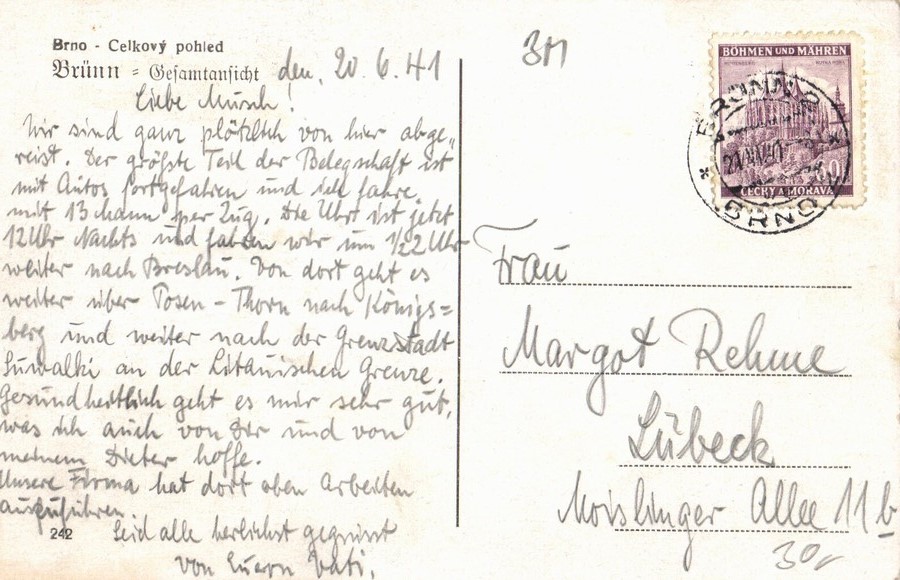 Brno - Celkový pohled
Brünn - Gesamtansicht
den, 20.6.41
Liebe Musch!
Wir sind ganz plötzlich von hier abge-
reist. Der größte Teil der Belegschaft ist
mit Autos fortgefahren und ich fahre
mit 13 Mann per Zug. Die Uhrt ist jetzt
12 Uhr Nachts und fahren wir um 1/2 2 Uhr
weiter nach Breslau. Von dort geht es
weiter über Posen - Thorn nach Königs=
berg und weiter nach der Grenzstadt
Suwalki an der Litauischen Grenze.
Gesundheitlich geht es mir sehr gut,
was ich auch von Dir und von
meinem Dieter hoffe.
Unsere Firma hat dort oben Arbeiten
auszuführen.
Seid alle herlichst gegrüsst
von Euern Vati.
242
3M
BÖHMEN UND MÄHREN
60
ČECHY A MORAVA
BRÜNN 2
BRNO
Frau
Margot Rehme
Lübeck
Moislinger Allee 11 b